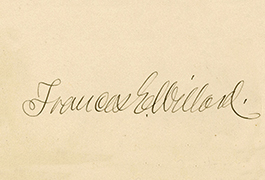 Frances E. Willard.